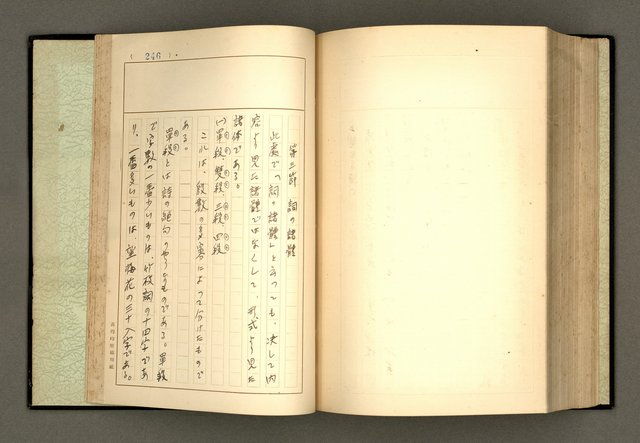 (246).
第三節 詞の諸體
此處で「詞の諸體」と云つても、決して内
容より見た諸體ではなくして、形式より見た
諸体である。
(一)單段、雙段、三段、四段
これは、段数の多寡によつて分けたもので
ある。
單段とは詩の絶句のやうなものである。單段
で字数の一番少いものは、竹枝詞の十四字であ
り、一番多いものは望梅花の三十八字である。